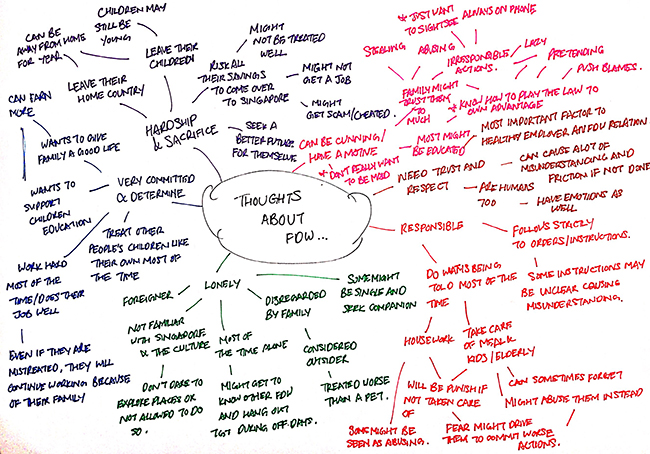 THOUGHTS
ABOUT
FDW...
HARDSHIP
& SACRIFICE
LEAVE THEIR
CHILDREN
CHILDREN MAY
STILL BE
YOUNG
CAN BE
AWAY FROM HOME
FOR YEAR
LEAVE THEIR
HOME COUNTRY
RISK ALL
THEIR SAVINGS
TO COME OVER
TO SINGAPORE
MIGHT
NOT BE TREATED
WELL
MIGHT NOT
GET A JOB
MIGHT
GET SCAM/CHEATED.
SEEK A
BETTER FUTURE
FOR THEMSELVE
VERY COMMITTED
& DETERMINE
WANTS TO GIVE
FAMILY A GOOD LIFE
CAN EARN
MORE
WANTS TO
SUPPORT
CHILDREN
EDUCATION
WORK HARD
MOST OF THE
TIME/DOES THEIR
JOB WELL
EVEN IF THEY ARE
MISTREATED, THEY WILL
CONTINUE WORKING BECAUSE
OF THEIR FAMILY
TREAT OTHER
PEOPLE'S CHILDREN LIKE
THEIR OWN MOST OF
THE TIME
LONELY
FOREIGNER
NOT FAMILIAR
WITH SINGAPORE
& THE CULTURE
DON'T DARE TO
EXPLORE PLACES OR
NOT ALLOWED TO DO
SO.
MOST OF
THE TIME ALONE
MIGHT GET TO
KNOW OTHER FDW
AND HANG OUT
TGT DURING OFF DAYS.
DISREGARDED
BY FAMILY
CONSIDERED
OUTSIDER
TREATED WORSE
THAN A PET.
SOME MIGHT
BE SINGLE AND
SEEK COMPANION
CAN BE CUNNING/
HAVE A MOTIVE
* DON'T REALLY WANT
TO BE MAID
MOST MIGHT
BE EDUCATED
* KNOW HOW TO PLAY THE LAW TO
OWN ADVANTAGE
FAMILY MIGHT
TRUST THEM
TO
MUCH
STEALING
ABUSING
IRRESPONSIBLE
ACTIONS.
* JUST WANT
TO SIGHTSEE
ALWAYS ON PHONE
LAZY
PRETENDING
PUSH BLAMES.
NEED TRUST AND
RESPECT
MOST IMPORTANT FACTOR TO
HEALTHY EMPLOYER AN FDW RELATION
CAN CAUSE A LOT OF
MISUNDERSTANDING AND
FRICTION IF NOT DONE
ARE HUMANS
TOO
HAVE EMOTIONS AS
WELL
RESPONSIBLE
FOLLOWS STRICLY
TO ORDERS/INSTRUCTIONS.
SOME INSTRUCTIONS MAY
BE UNCLEAR CAUSING
MISUNDERSTANDING.
TOLD MOST OF THE
TIME
HOUSEWORK
TAKE CARE
OF
KIDS/ELDERLY
WILL BE PUNISH IF
NOT TAKEN CARE
OF
SOME MIGHT BE
SEEN AS ABUSING.
FEAR MIGHT DRIVE
THEM TO COMMIT WORSE
ACTIONS.
CAN SOMETIMES FORGET
MIGHT ABUSE THEM INSTEAD